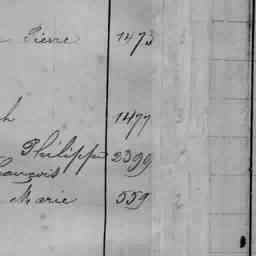 Pierre 1473
h 1477
Philippe 2399
François
Marie 559